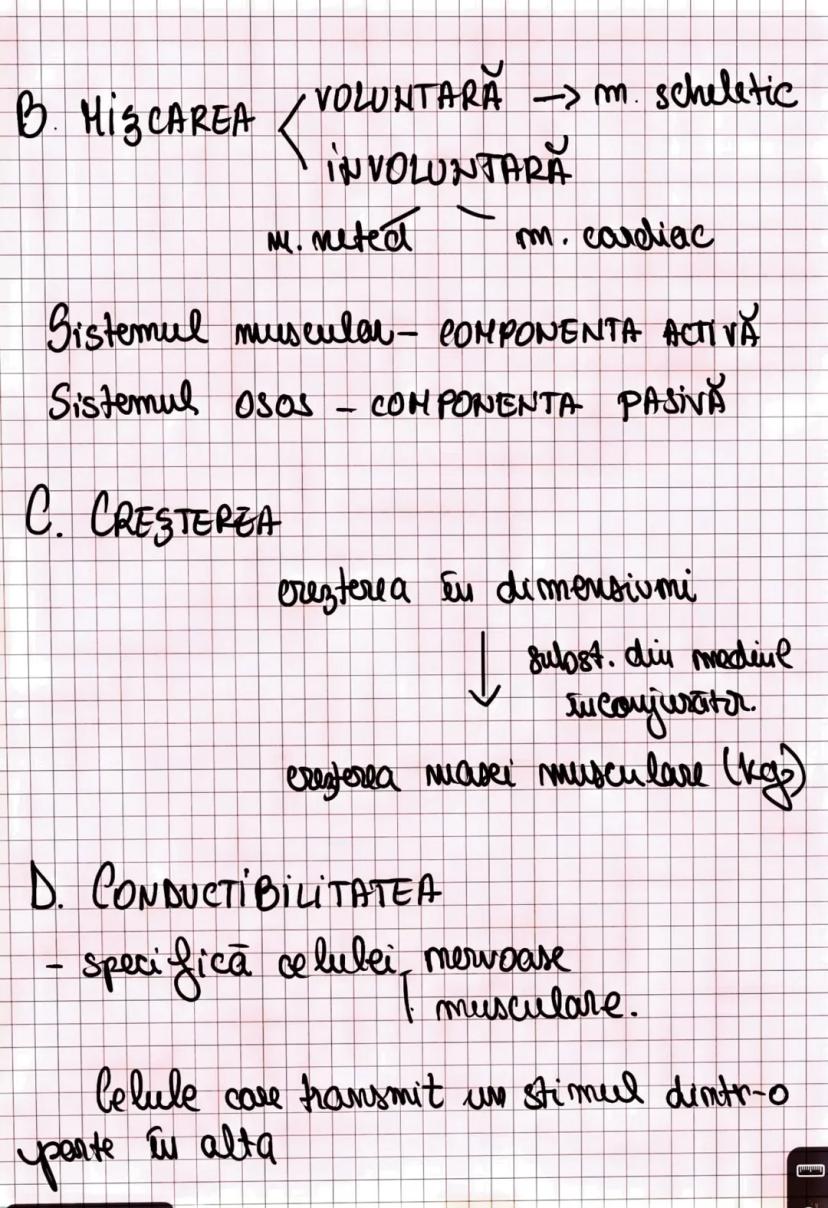 B. MIȘCAREA < VOLUNTARĂ → m. scheletic
INVOLUNTARĂ
m. neted m. cardiac
Sistemul muscular - COMPONENTA ACTIVĂ
Sistemul osos - COMPONENTA PASIVĂ
C. CREȘTEREA
creșterea în dimensiuni
↓ subst. din mediul
înconjurător.
creșterea masei musculare (kg)
D. CONDUCTIBILITATEA
- specifică celulei nervoase
musculare.
Celule care transmit un stimul dintr-o
parte în alta